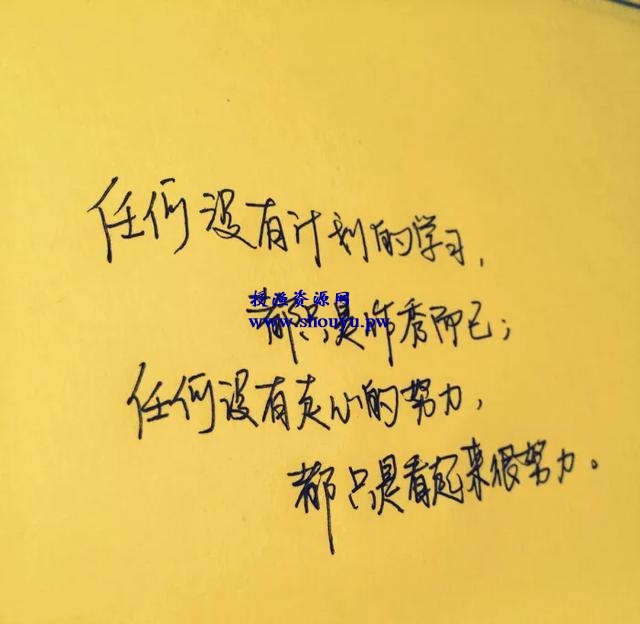 任何没有计划的学习，
授渔资源网
www.shouyu.pw
都只是作秀而已；
任何没有走心的努力，
都只是看起来很努力。